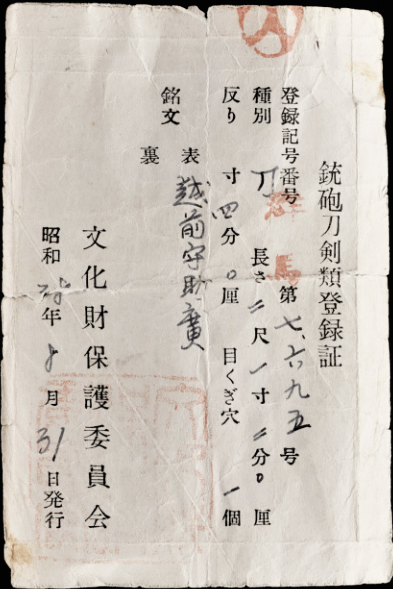 銃砲刀剣類登録証
登録記号番号 群馬 第七、六九五号
種別 刀 長さ 二尺一寸二分0厘
反り 寸四分0厘 目くぎ穴 一個
銘文 表 越前守助廣
裏
文化財保護委員会
昭和 年 月31日発行